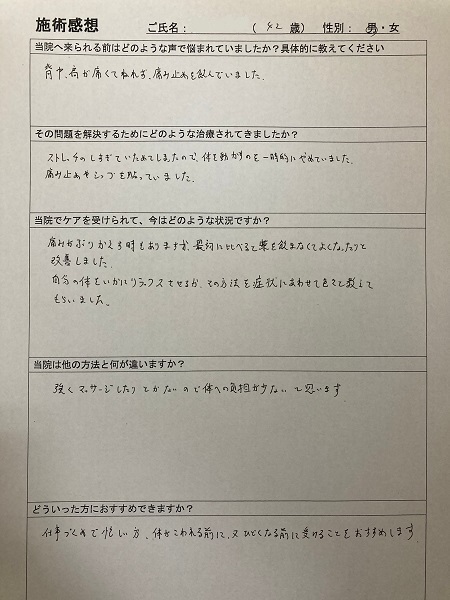 施術感想 ご氏名： （ 42 歳） 性別：男・女
当院へ来られる前はどのような声で悩まれていましたか？具体的に教えてください
背中、肩が痛くてねれず、痛み止めを飲んでいました。
その問題を解決するためにどのような治療されてきましたか？
ストレッチのしすぎでいためてしまったので、体を動かすのを一時的にやめていました。
痛み止めやシップを貼っていました。
当院でケアを受けられて、今はどのような状況ですか？
痛みがぶりかえす時もありますが、最初に比べると薬を飲まなくてよくなったりと
改善しました。
自分の体をいかにリラックスさせるか、その方法を症状にあわせて色々と教えて
もらいました。
当院は他の方法と何が違いますか？
強くマッサージしたりとかないので体への負担が少ないと思います
どういった方におすすめできますか？
仕事づくめで忙しい方、体がこわれる前に、又ひどくなる前に受けることをおすすめします